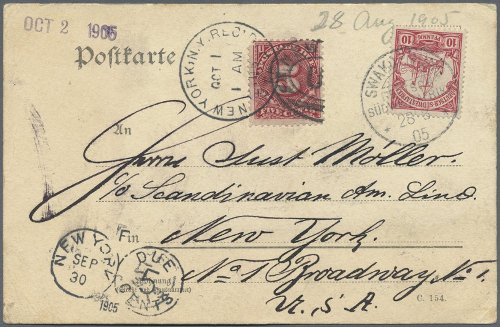 OCT 2 1905
28 Aug 1905
Postkarte
NEW YORK, N.Y. REC'D
OCT 1
1 AM
10
PFENNIG 10
SWAK
28
05
An
Herrn Just Möller.
c/o Scandinavian Am. Line.
New York.
No 1 Broadway No 1.
U. S. A.
NEW YORK
SEP
30
1905
Fin
DUE
CENTS
C. 154.